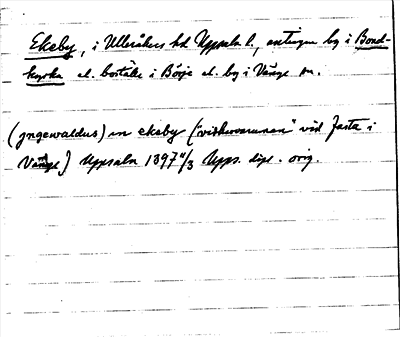 Ekeby, i Ulleråkers hd Uppsala l., antingen by i Bond-
kyrka el. boställe i Börje el. by i Vänge sn.
(jngewaldus) in ekeby ("vid fasta i
Vänge) Uppsala 1397 4/3 Upps. dipl. orig.